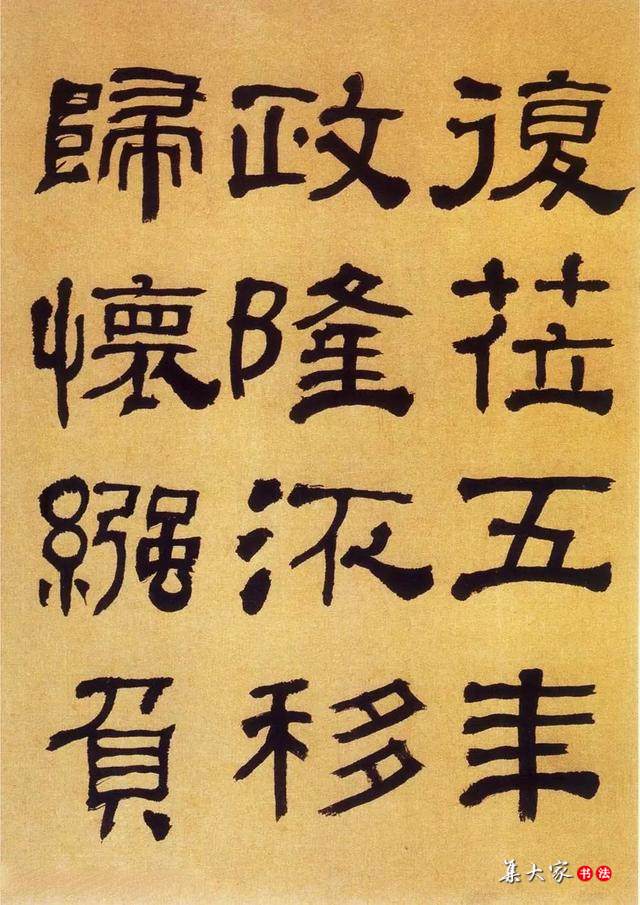 復莅五年
政隆㳅移
歸懷繦負
集大家书法